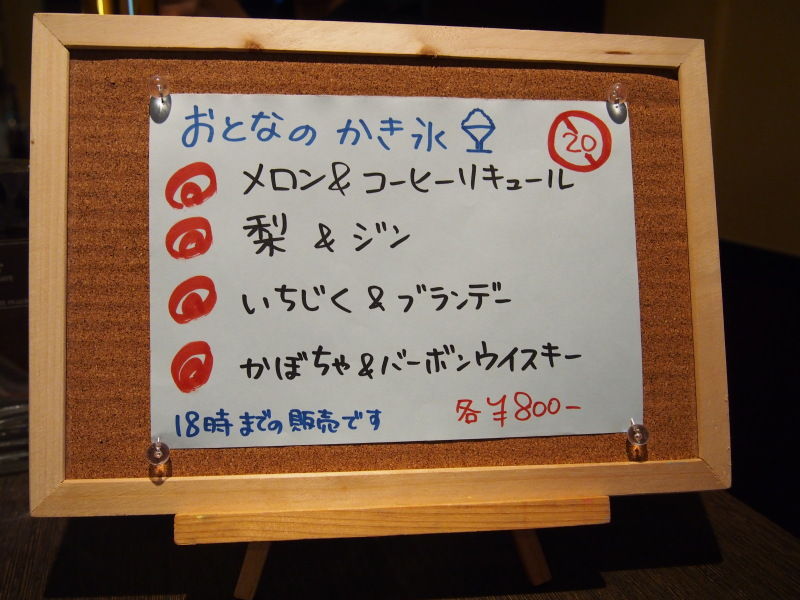 おとなのかき氷
20
メロン&コーヒーリキュール
梨&ジン
いちじく&ブランデー
かぼちゃ&バーボンウイスキー
18時までの販売です
各¥800-